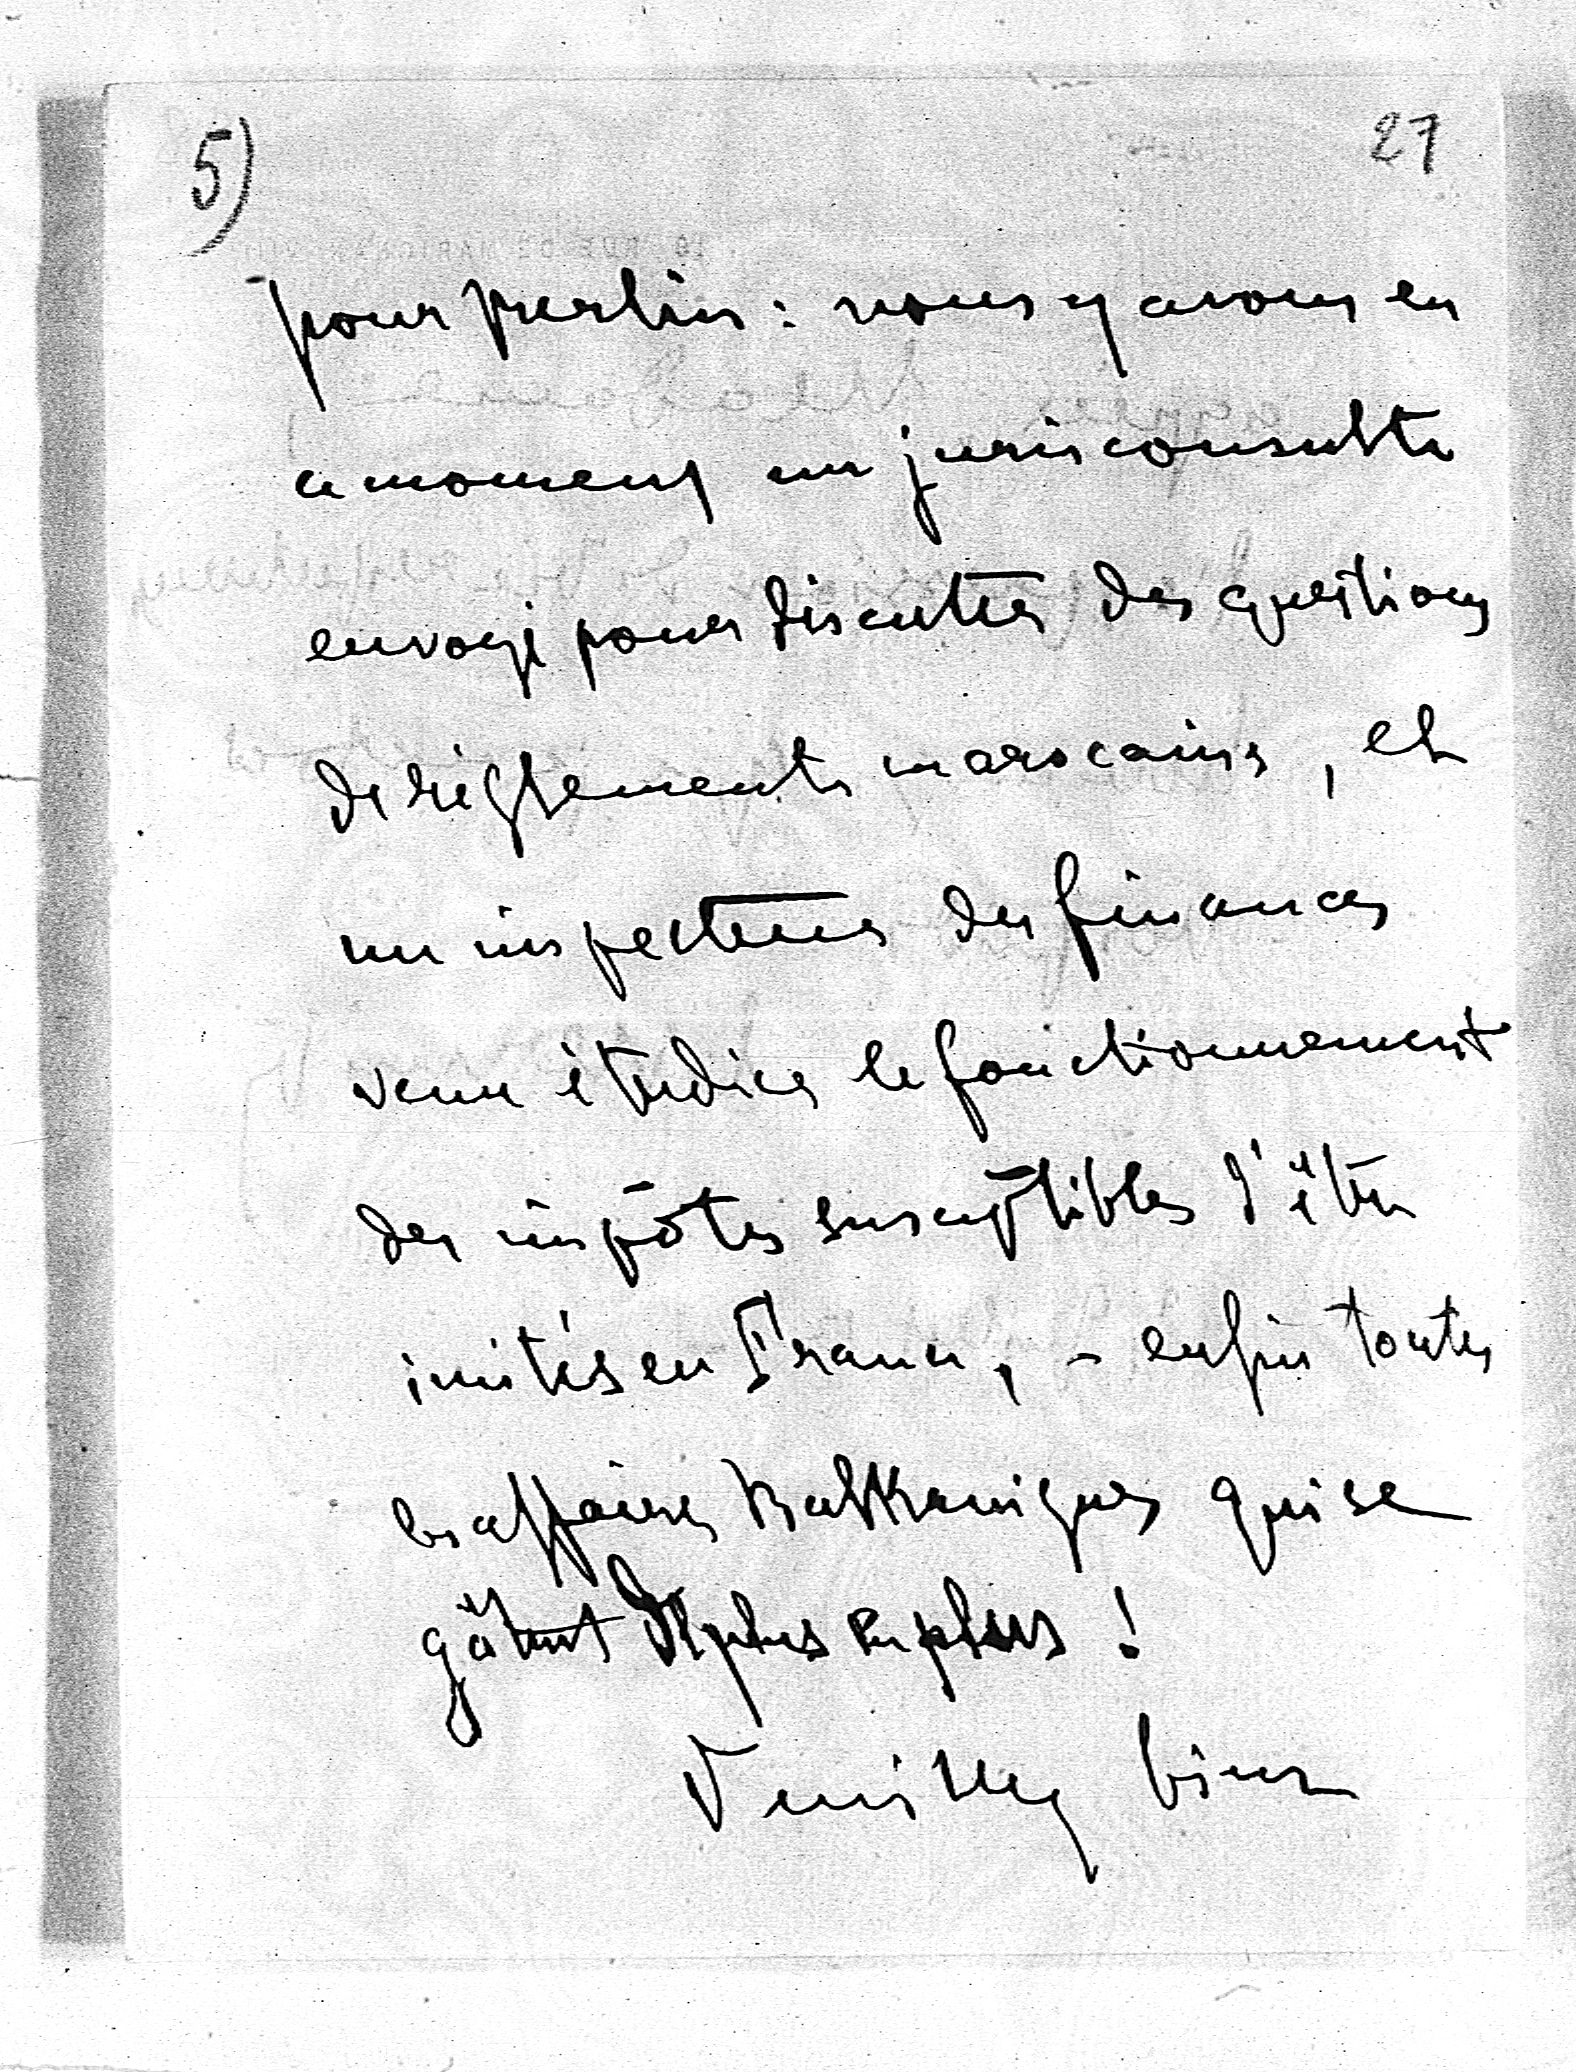 5)
27
pour Berlin : nous y avons en
ce moment un jurisconsulte
envoyé pour discuter des questions
de règlements marocains, et
un inspecteur des finances
venu étudier le fonctionnement
des impôts susceptibles d'être
imités en France, - enfin toutes
les affaires Balkaniques qui se
gâtent de plus en plus !
Veuillez bien